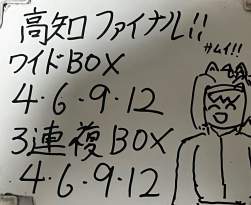 高知ファイナル!!
ワイドBOX
4・6・9・12
3連複BOX
4・6・9・12
サムイ!!